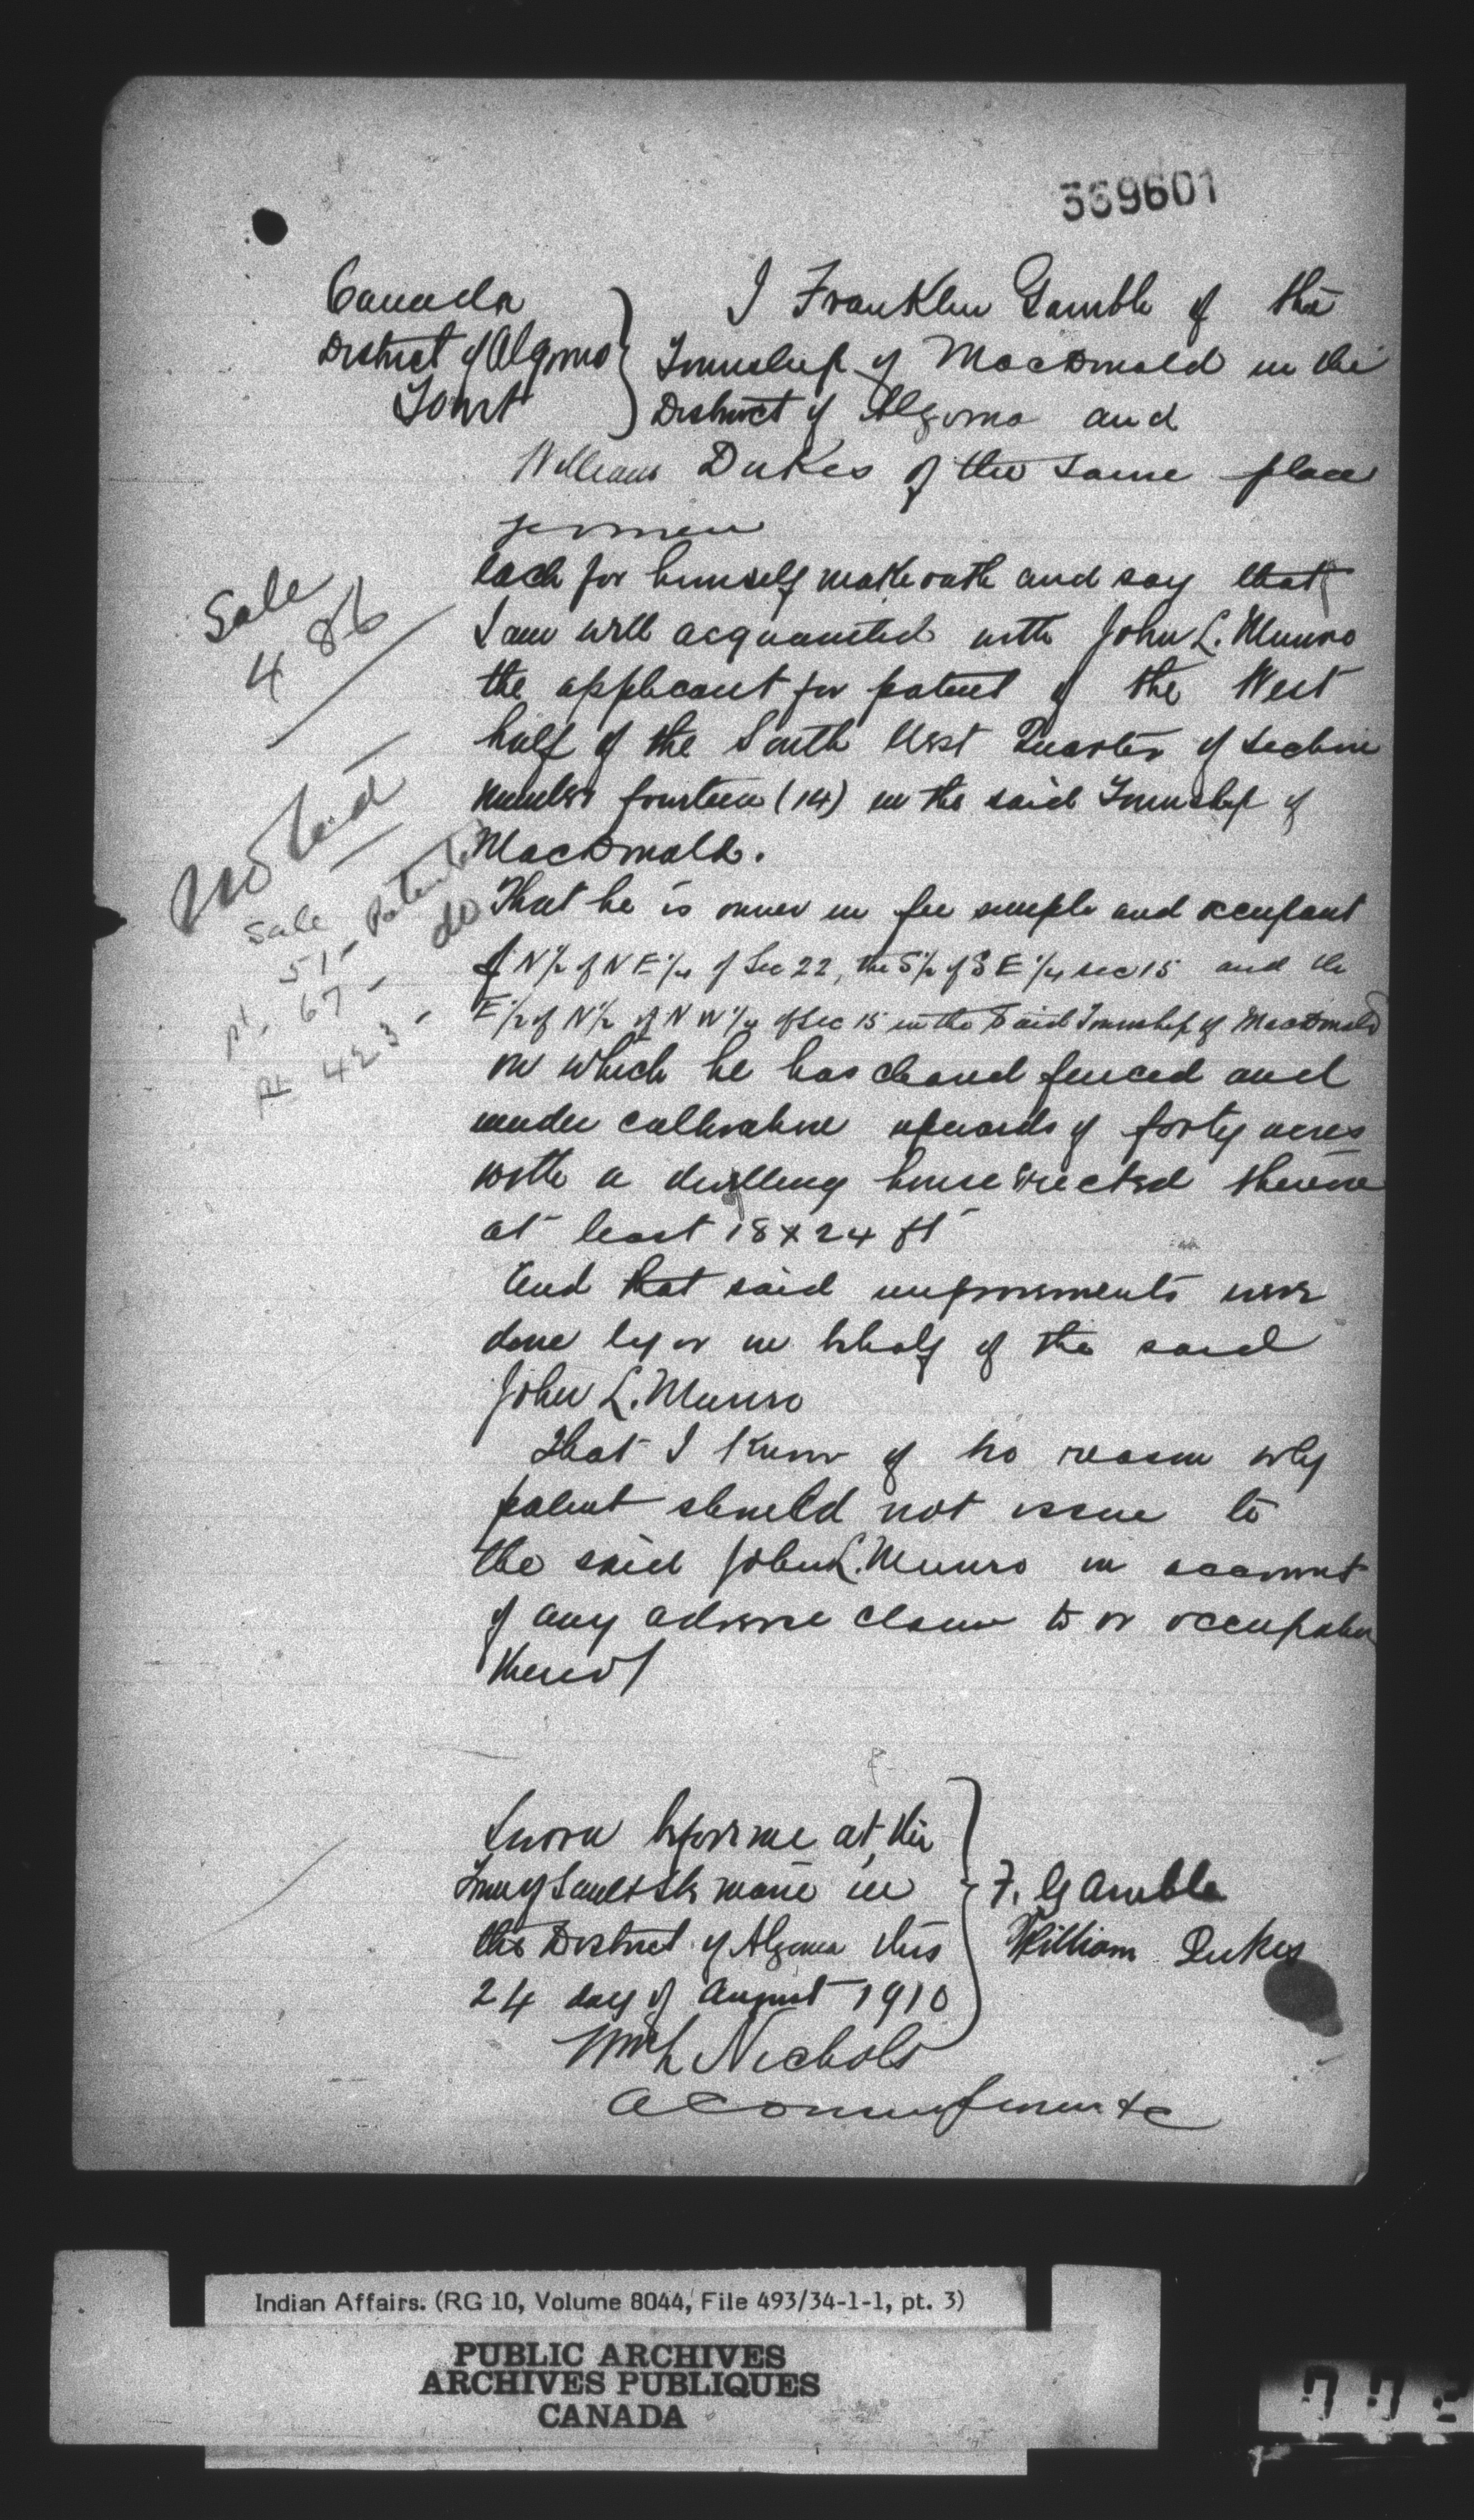 369601
Canada
District of Algoma
To Wit
I Franklin Gamble of the
Township of MacDonald in the
District of Algoma and
William Dukes of the same place
yeomen
Each for himself make oath and say that
I am well acquainted with John L. Munro
the applicant for patent of the West
half of the South West Quarter of Section
number fourteen (14) in the said Township of
MacDonald.
That he is owner in fee simple and occupant
of N½ of N E ¼ of Sec 22, the S½ of S E ¼ sec 15 and the
E½ of N½ of N W ¼ of Sec 15 in the said Township of MacDonald
on which he has cleared fenced and
under cultivation upwards of forty acres
with a dwelling house erected thereon
at least 18 x 24 ft
And that said improvements were
done by or on behalf of the said
John L. Munro
That I know of no reason why
patent should not issue to
the said John L. Munro on account
of any adverse claim to or occupation
thereof
Sale
486
Noted
Sale
51 - Patented
pt. 67 - do
pt 423 -
Sworn before me at the
Town of Sault Ste Marie in
the District of Algoma this
24 day of August 1910
F. Gamble
William Dukes
Wm H Nichols
A Commr &c
Indian Affairs. (RG 10, Volume 8044, File 493/34-1-1, pt. 3)
PUBLIC ARCHIVES
ARCHIVES PUBLIQUES
CANADA